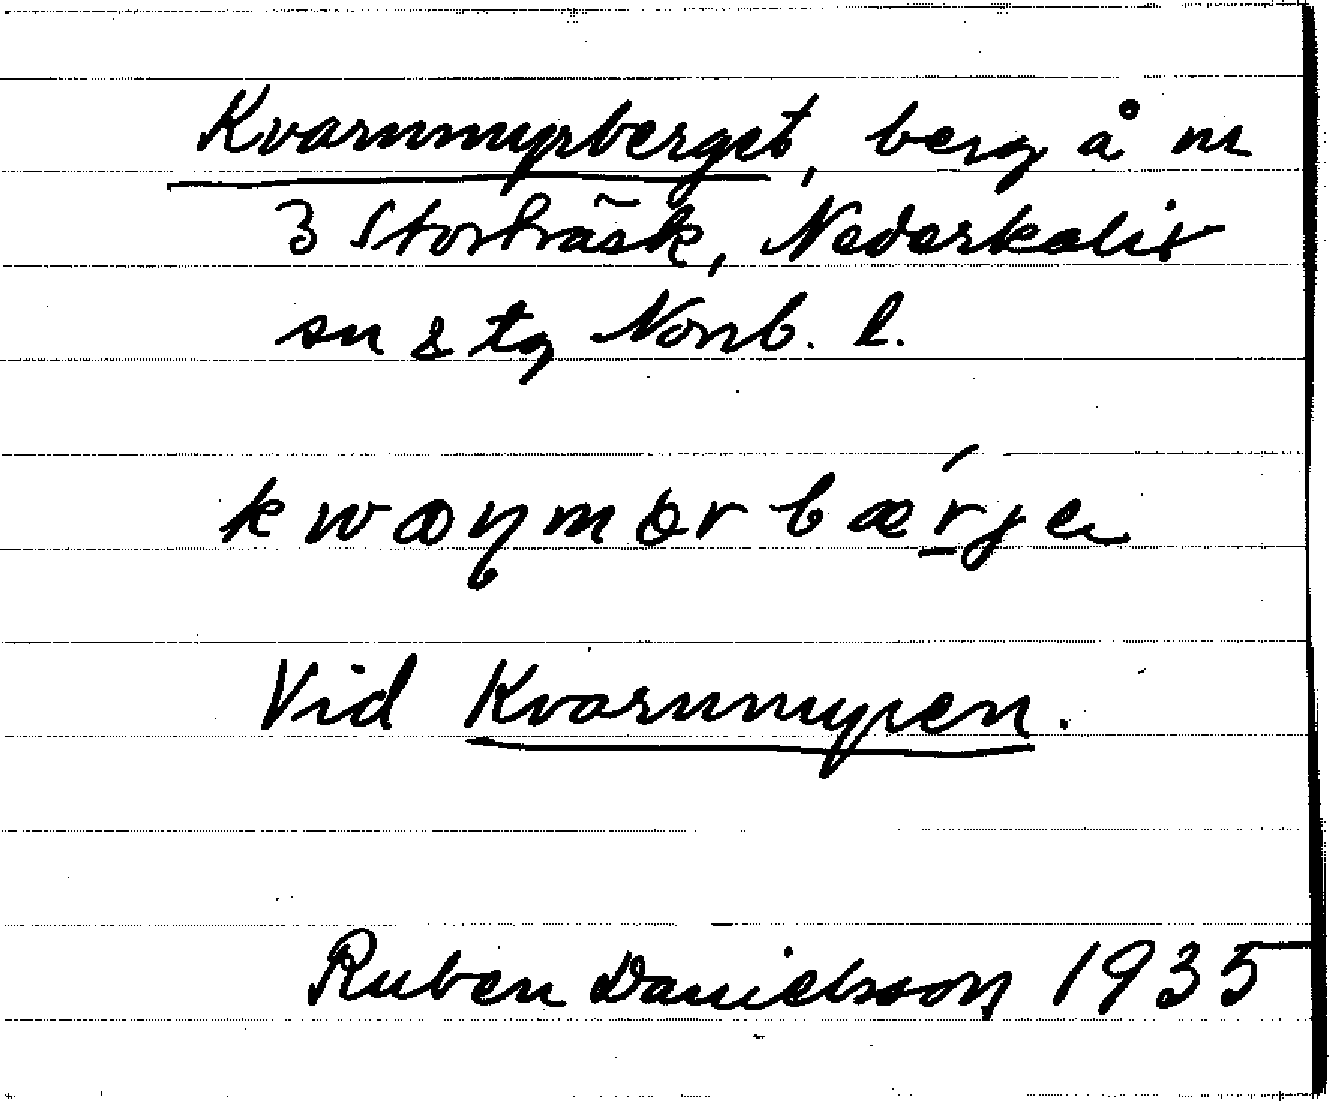 Kvarnmyrberget, berg å nr
3 Storträsk, Nederkalix
sn & tg Norrb. l.
kwæŋmɵrbǽrjɵ
Vid Kvarnmyren.
Ruben Danielsson 1935